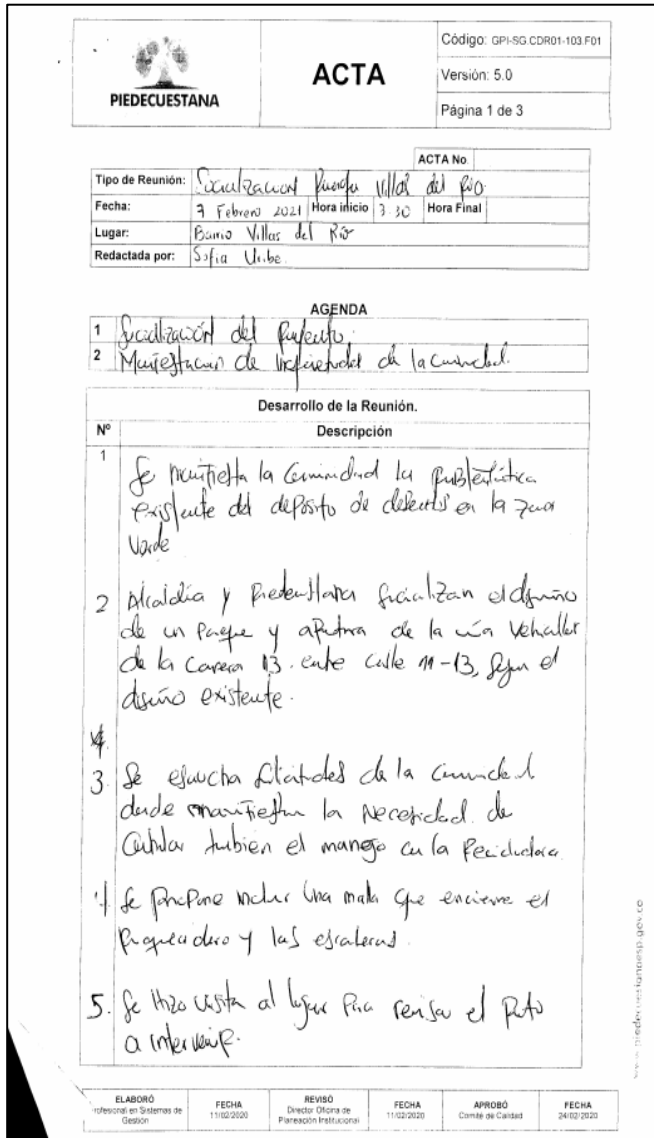 PIEDECUESTANA
ACTA
Código: GPI-SG.CDR01-103.F01
Versión: 5.0
Página 1 de 3
ACTA No.
Tipo de Reunión: Socialización Villas del Río
Fecha: 7 Febrero 2021 Hora inicio 3:30 Hora Final
Lugar: Barrio Villas del Río
Redactada por: Sofia Uribe.
AGENDA
1 Socialización del
2 de la comunidad.
Desarrollo de la Reunión.
Nº Descripción
1 Se manifiesta la comunidad la problemática
existente del depósito de en la zona
Verde
2 Alcaldía y Piedecuestana socializan el diseño
de un parque y apertura de la vía Vehicular
de la Carrera 13 entre calle 11-13, según el
diseño existente.
3 Se escucha de la comunidad
donde manifiestan la Necesidad de
también el manejo
4 Se propone incluir una malla que encierre el
parqueadero y las escaleras.
5. Se hizo visita al lugar para revisar el punto
a intervenir.
www.piedecuestanaesp.gov.co
ELABORÓ
rofesional en Sistemas de
Gestión
FECHA
11/02/2020
REVISÓ
Director Oficina de
Planeación Institucional
FECHA
11/02/2020
APROBÓ
Comité de Calidad
FECHA
24/02/2020